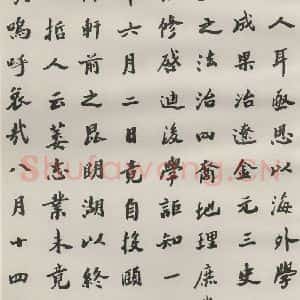 人耳亟思以海外學
成果治遼金元三史
之法治四裔地理庶
修感迪後學詎知一
六月二日竟自投頤
軒前之昆明湖以終
哲人云萎志業未竟
嗚呼哀哉八月十四
Shufawang.CN